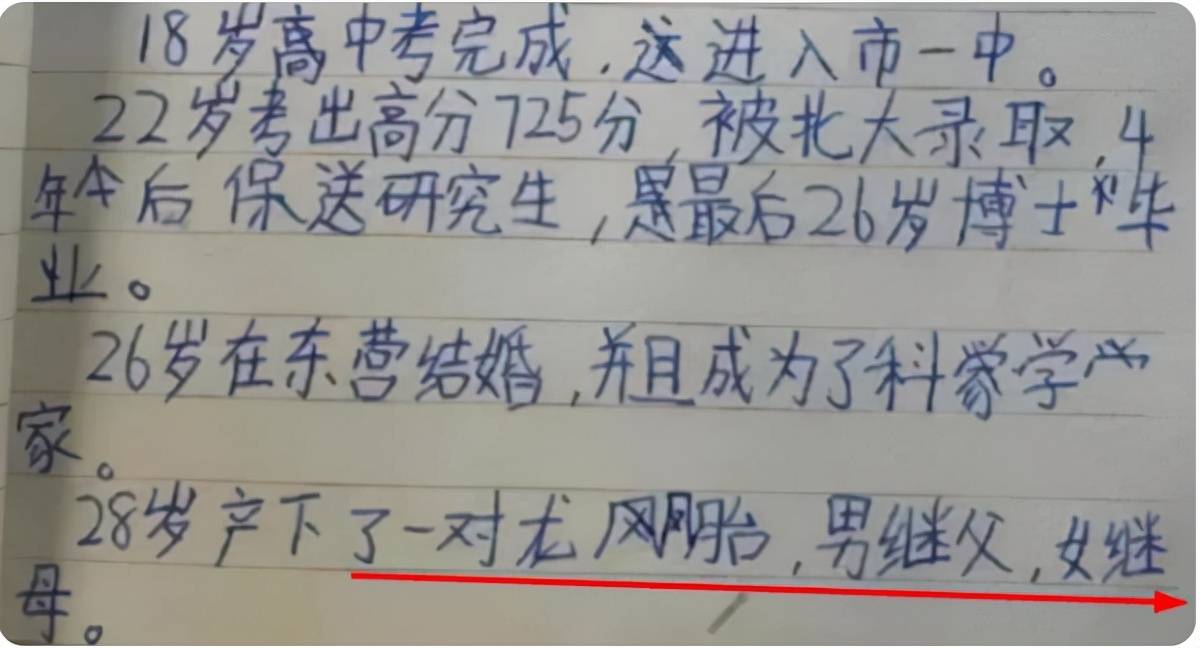 18岁高中考完成，送进入市一中。
22岁考出高分725分，被北大录取，4
年后保送研究生，最后26岁博士毕
业。
26岁在东营结婚，并且成为了科学
家。
28岁产下了一对龙凤胎，男继父，女继
母。